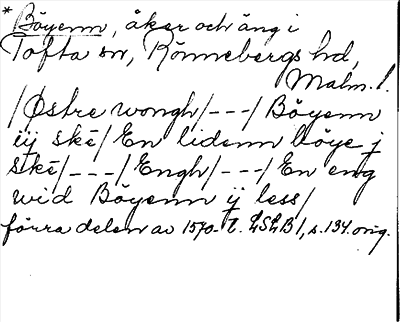 * Böyenn, åker och äng i
Tofta sn, Rönnebergs hd,
Malm. l.
/Østre wongh/---/ Böyenn
iij skē/ En lidenn böye j
skē/---/Engh/---/En eng
wid Böyenn ij less/
förra delen av 1570-t. LSLB 1, s. 134. orig.